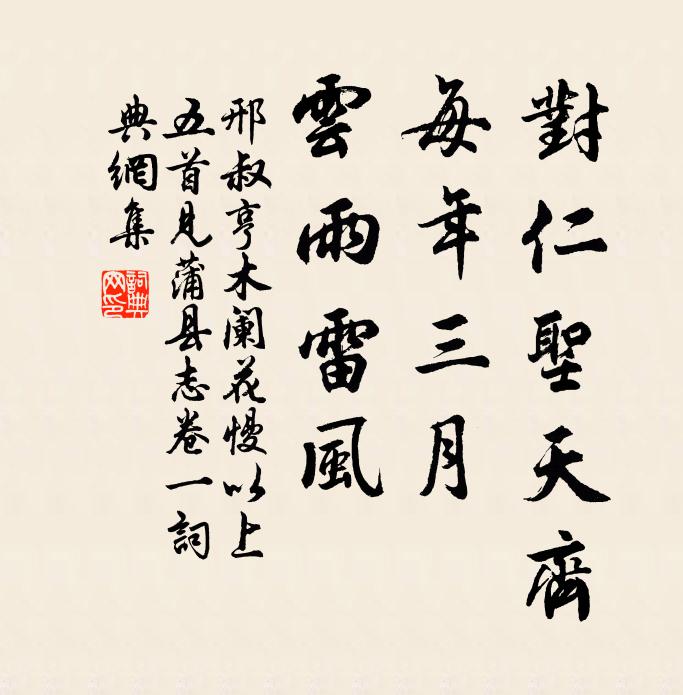 對仁聖天齊
每年三月
雲雨雷風
邢叔亨木阑花慢以上
五首見蒲县志卷一詞
典網集
詞典
网印